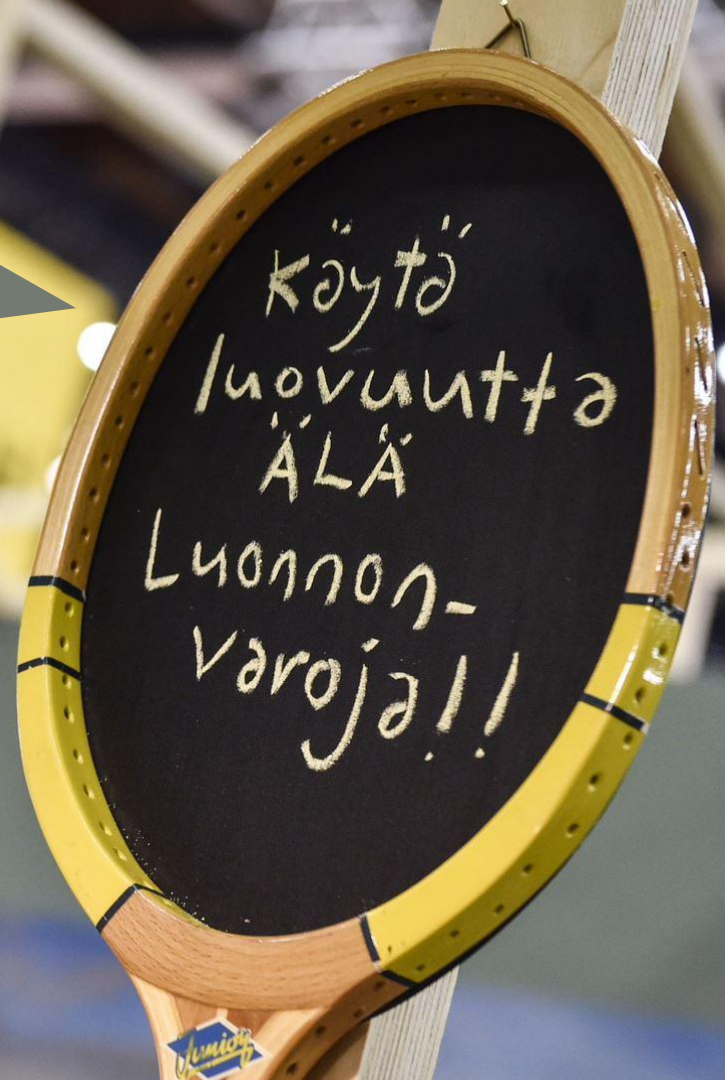 Käytä
luovuutta
ÄLÄ
Luonnon-
varoja!!
Junior